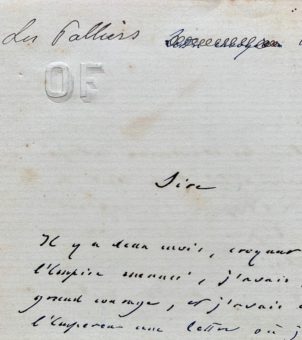 Les Palliers
OF
Sire
Il y a deux mois, croyant
l'Empire menacé, j'avais
grand courage, et j'avais
l'Empereur une lettre où j